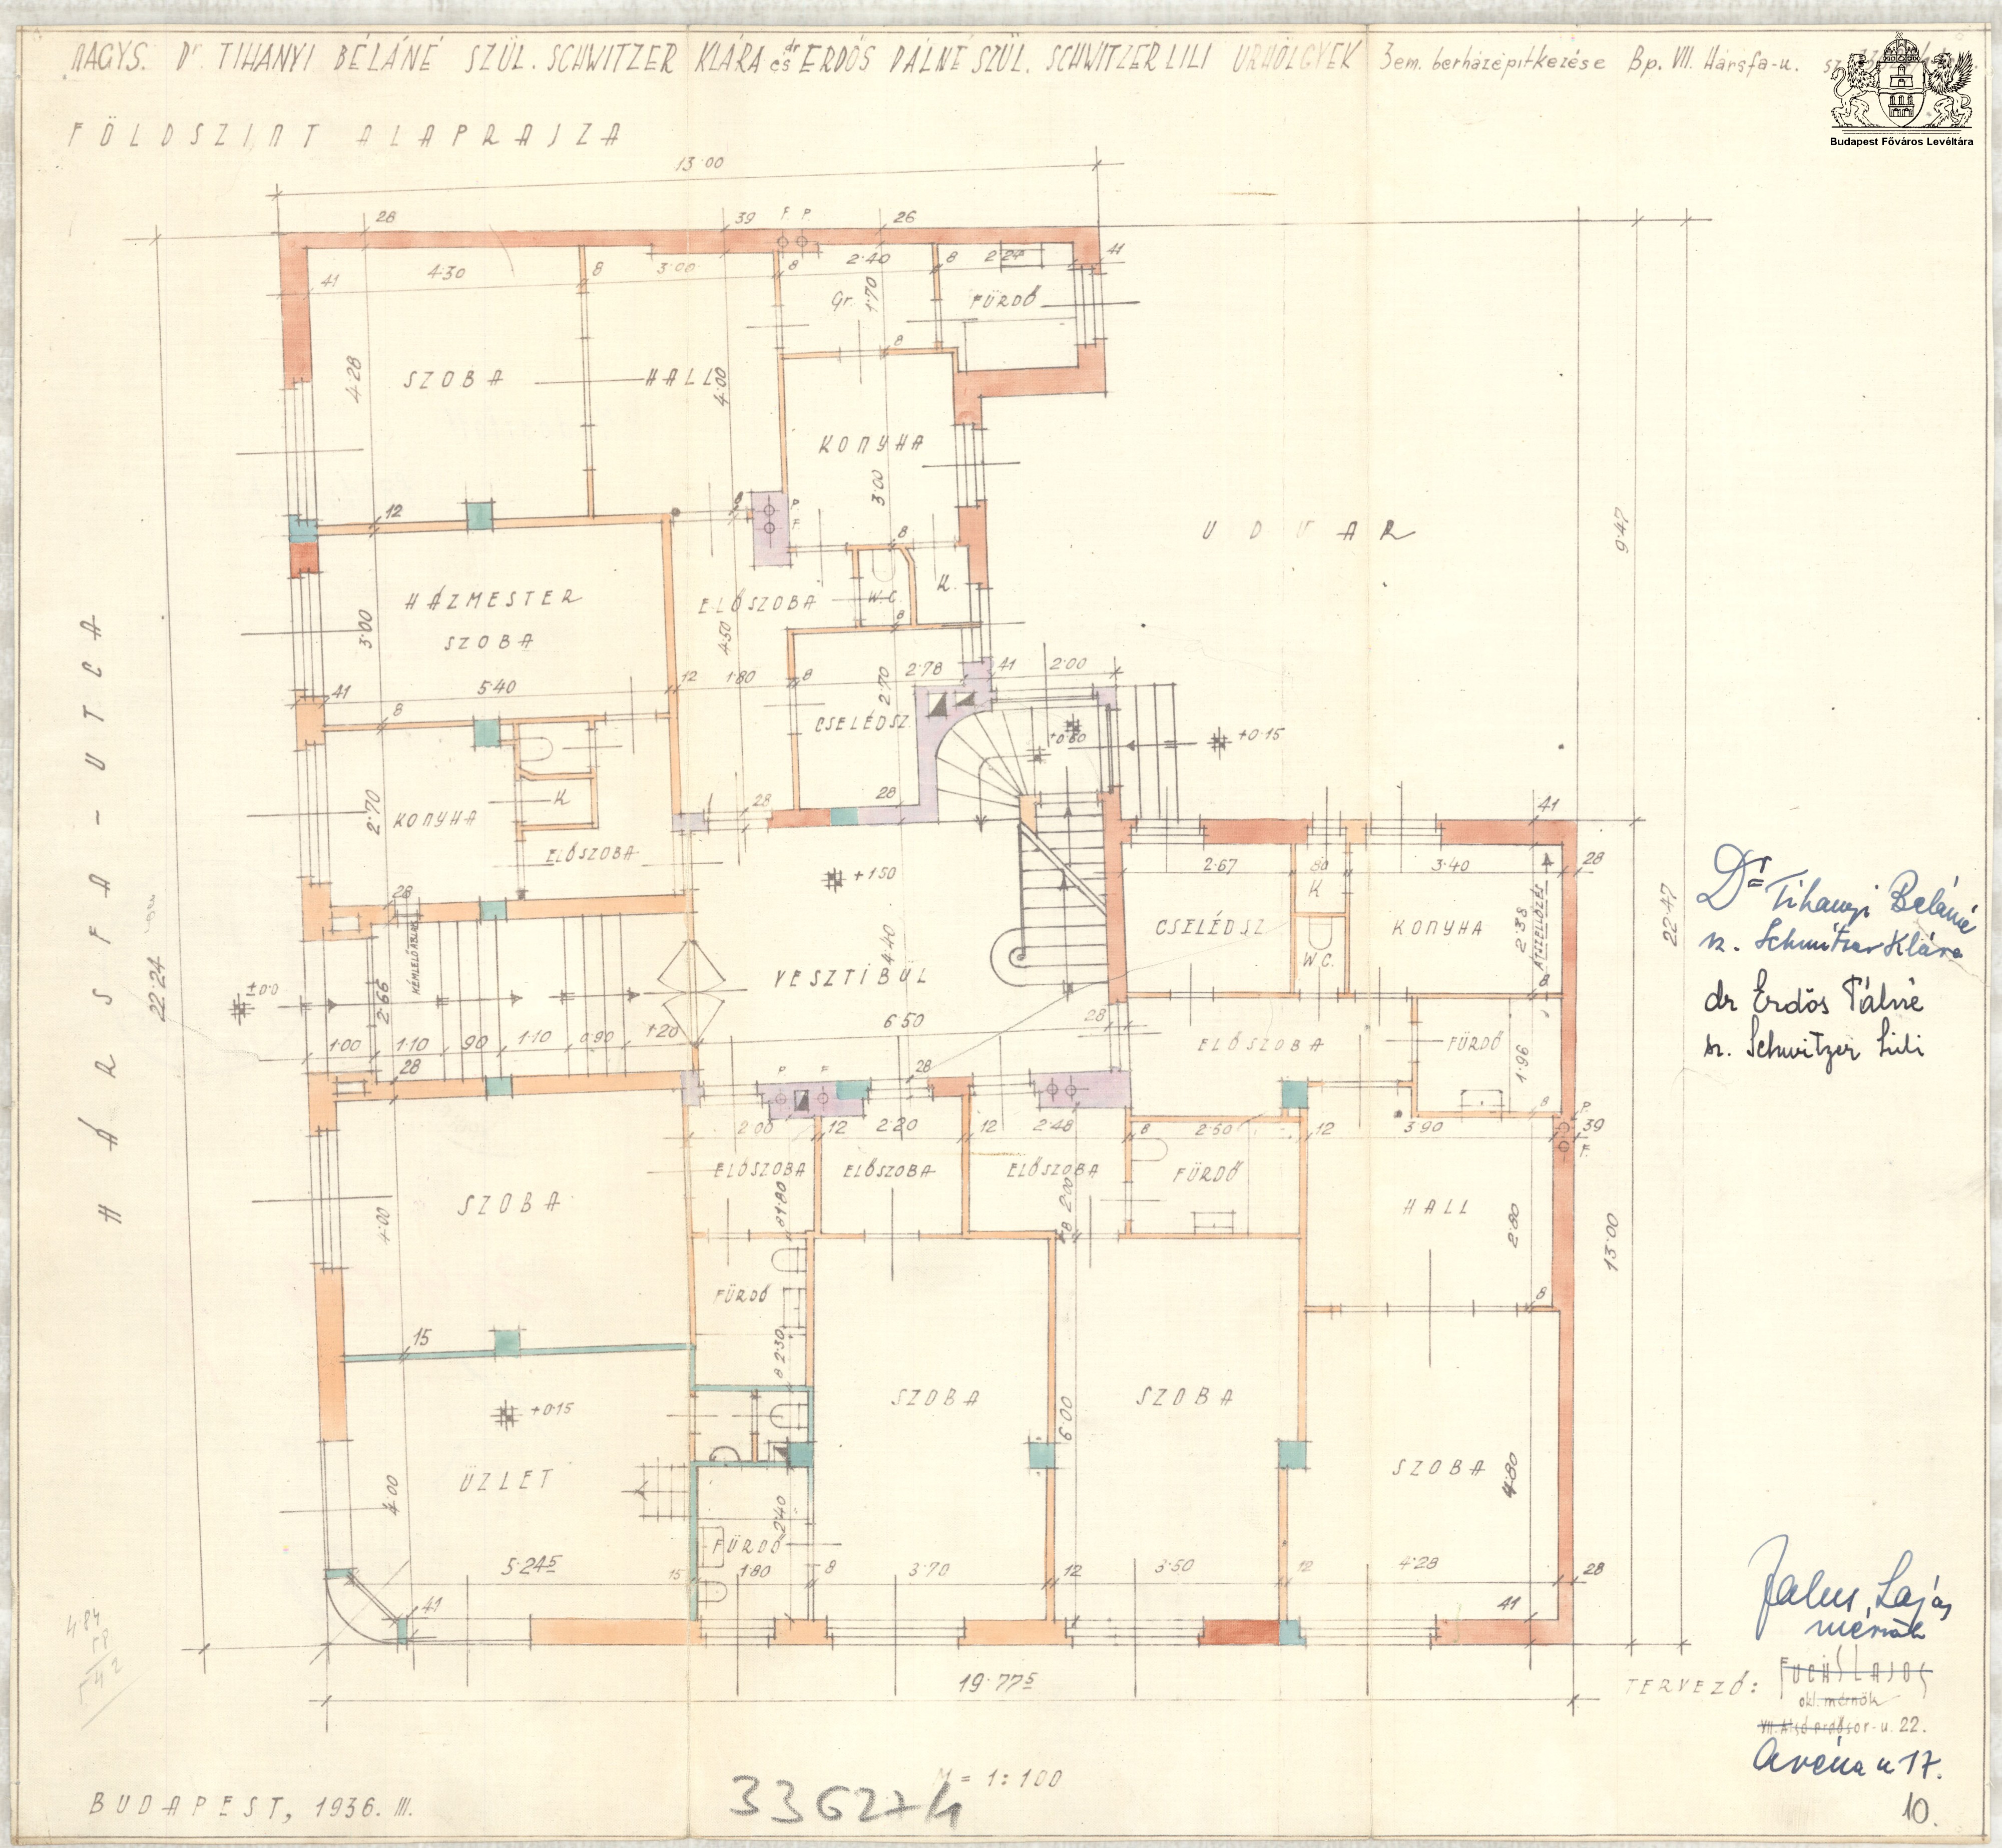 NAGYS. Dr. TIHANYI BÉLÁNÉ SZÜL. SCHWITZER KLÁRA és dr ERDŐS PÁLNÉ SZÜL. SCHWITZER LILI URHÖLGYEK 3em. bérházépítkezése Bp. VII. Hársfa-u. sz.
Budapest Főváros Levéltára
FÖLDSZINT ALAPRAJZA
13·00
28 39 F. P. 26
41 4·30 8 3·00 8 2·40 8 2·24 41
Gr. 1·70 FÜRDŐ
8
4·28 SZOBA HALL 4·00
KONYHA
3·00
12 8 P. F. 8
UDVAR
9·47
HÁZMESTER
SZOBA
3·00
ELŐSZOBA W.C. K.
8
4·50
41 5·40 12 1·80 8 2·78 41 2·00
8
2·70
CSELÉDSZ.
+0·60 +0·15
28 28
2·70 KONYHA K
ELŐSZOBA
28
HÁRSFA-UTCA
22·24
KÉMLELŐABLAK
+1·50
4·40
VESZTIBÜL
6·50
28
±0·0
2·66
1·00 1·10 90 1·10 0·90 1·20
28
41
2·67 80 3·40 28
K
CSELÉDSZ. KONYHA 2·38 ÁTSZELLŐZÉS
W.C.
8
ELŐSZOBA FÜRDŐ 1·96
8
22·47
P. F. 28
2·00 12 2·20 12 2·48 8 2·50 12 3·90 P. 39 F.
ELŐSZOBA ELŐSZOBA ELŐSZOBA FÜRDŐ
8 1·80 2·00 8
SZOBA
4·00
HALL
2·80
8
13·00
FÜRDŐ
8 2·30
15
SZOBA SZOBA
6·00
+0·15
ÜZLET
4·00
SZOBA
4·80
2·40
FÜRDŐ
5·24⁵ 15 1·80 8 3·70 12 3·50 12 4·28 28
41 41
19·77⁵
4·84
58
542
Dr Tihanyi Béláné
sz. Schwitzer Klára
dr Erdős Pálné
sz. Schwitzer Lili
mérnök
TERVEZŐ: FUCHS LAJOS
okl. mérnök
VII. Alsó erdősor-u. 22.
Aréna u 17.
10.
M = 1:100
33627/4
BUDAPEST, 1936. III.